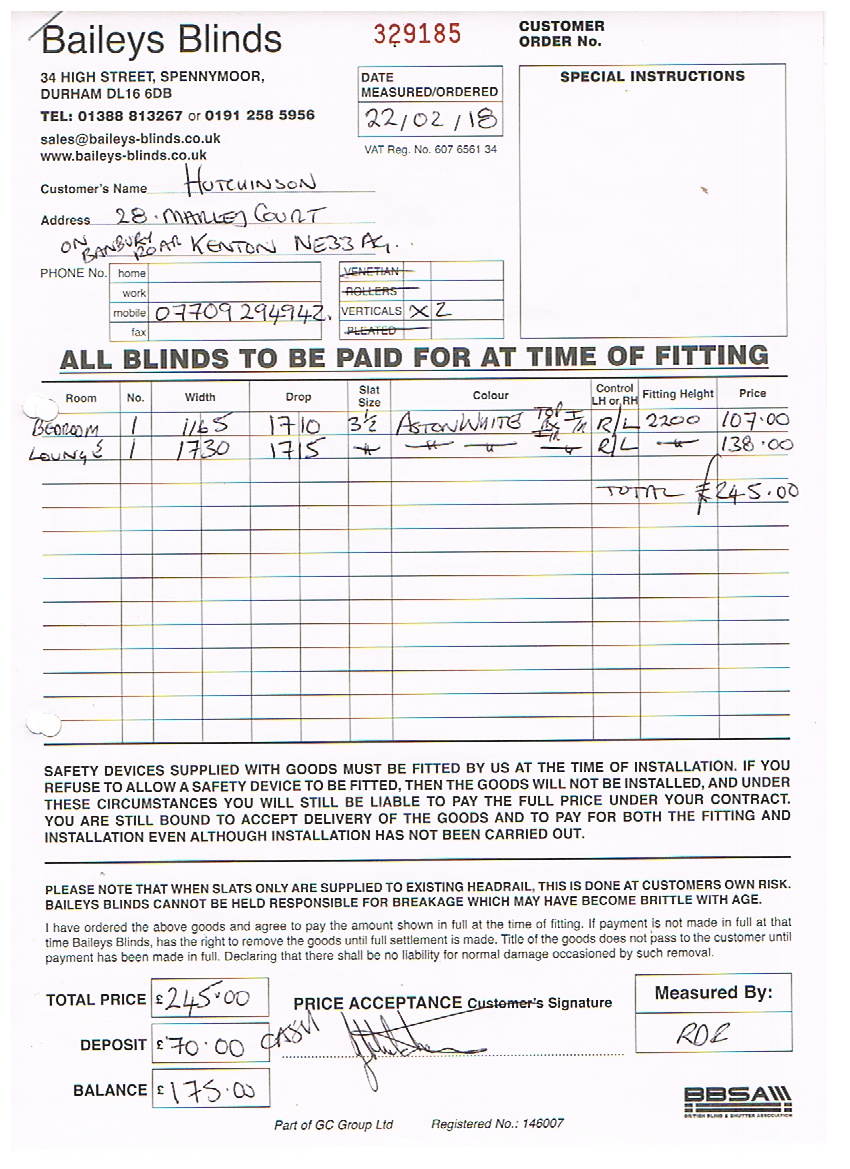 Baileys Blinds
329185
CUSTOMER
ORDER No.
34 HIGH STREET, SPENNYMOOR,
DURHAM DL16 6DB
TEL: 01388 813267 or 0191 258 5956
sales@baileys-blinds.co.uk
www.baileys-blinds.co.uk
DATE
MEASURED/ORDERED
22/02/18
VAT Reg. No. 607 6561 34
SPECIAL INSTRUCTIONS
Customer's Name HUTCHINSON
Address 28. MARLEY COURT
ON BANBURY ROAD KENTON NE33AG..
PHONE No. home
work
mobile 07709 294942.
fax
VENETIAN
ROLLERS
VERTICALS X2
PLEATED
ALL BLINDS TO BE PAID FOR AT TIME OF FITTING
Room No. Width Drop Slat Size Colour Control LH or RH Fitting Height Price
BEDROOM 1 1165 1710 3½ ASTON WHITE R/L 2200 107.00
LOUNGE 1 1730 1715 " " " " R/L " 138.00
TOTAL £245.00
SAFETY DEVICES SUPPLIED WITH GOODS MUST BE FITTED BY US AT THE TIME OF INSTALLATION. IF YOU
REFUSE TO ALLOW A SAFETY DEVICE TO BE FITTED, THEN THE GOODS WILL NOT BE INSTALLED, AND UNDER
THESE CIRCUMSTANCES YOU WILL STILL BE LIABLE TO PAY THE FULL PRICE UNDER YOUR CONTRACT.
YOU ARE STILL BOUND TO ACCEPT DELIVERY OF THE GOODS AND TO PAY FOR BOTH THE FITTING AND
INSTALLATION EVEN ALTHOUGH INSTALLATION HAS NOT BEEN CARRIED OUT.
PLEASE NOTE THAT WHEN SLATS ONLY ARE SUPPLIED TO EXISTING HEADRAIL, THIS IS DONE AT CUSTOMERS OWN RISK.
BAILEYS BLINDS CANNOT BE HELD RESPONSIBLE FOR BREAKAGE WHICH MAY HAVE BECOME BRITTLE WITH AGE.
I have ordered the above goods and agree to pay the amount shown in full at the time of fitting. If payment is not made in full at that
time Baileys Blinds, has the right to remove the goods until full settlement is made. Title of the goods does not pass to the customer until
payment has been made in full. Declaring that there shall be no liability for normal damage occasioned by such removal.
TOTAL PRICE £245.00
DEPOSIT £70.00 CASH
BALANCE £175.00
PRICE ACCEPTANCE Customer's Signature
Measured By:
RDR
BBSA
BRITISH BLIND & SHUTTER ASSOCIATION
Part of GC Group Ltd Registered No.: 146007